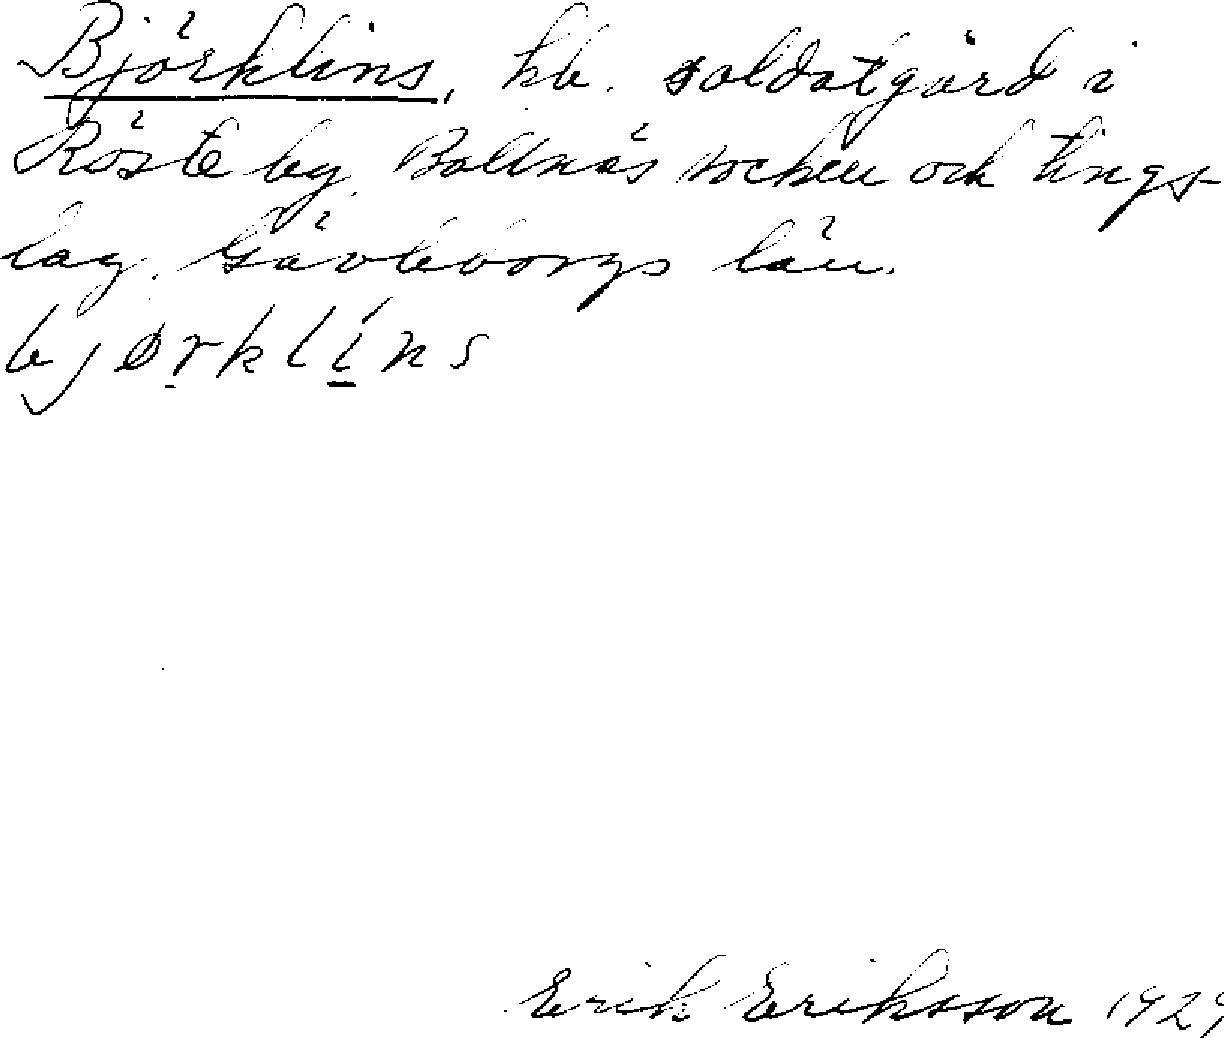 Björklins, hb. soldatgård i
Röste by, Bollnäs socken och tings-
lag. Gävleborgs län.
bjørklins
Erik Eriksson 1929